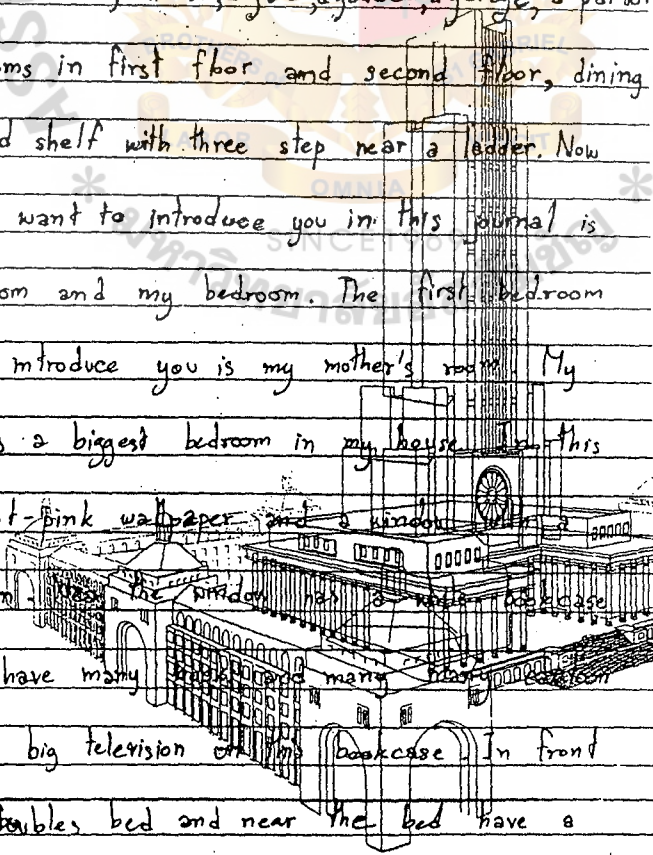 oms in first floor and second floor, dining
d shelf with three step near a ladder. Now
want to introduce you in this journal is
om and my bedroom. The first bedroom
introduce you is my mother's room My
s a biggest bedroom in my house In this
t-pink wallpaper and a window with a
n near the window has a bookcase
have many books and many many cartoon
big television on this bookcase. In frond
doubles bed and near the bed have a
BROTHERS GABRIEL
LABOR
OMNIA
SINCE 1969